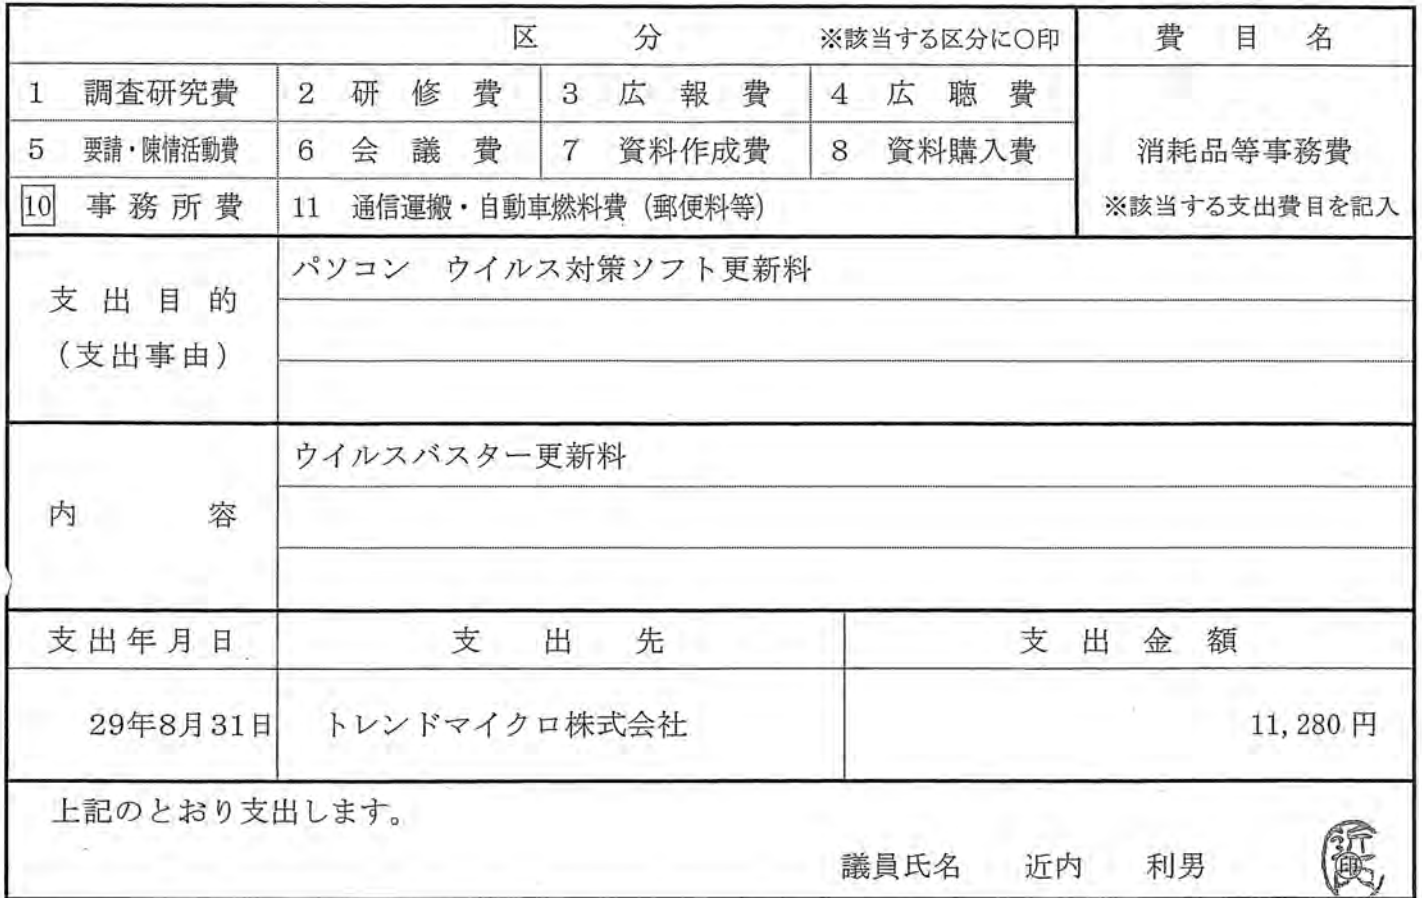 区　分　※該当する区分に○印　費　目　名
1　調査研究費　2　研　修　費　3　広　報　費　4　広　聴　費
5　要請・陳情活動費　6　会　議　費　7　資料作成費　8　資料購入費　消耗品等事務費
10　事務所費　11　通信運搬・自動車燃料費（郵便料等）　※該当する支出費目を記入
パソコン　ウイルス対策ソフト更新料
支出目的
（支出事由）
ウイルスバスター更新料
内　容
支出年月日　支　出　先　支　出　金　額
29年8月31日　トレンドマイクロ株式会社　11,280円
上記のとおり支出します。
議員氏名　近内　利男　印